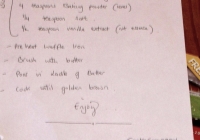 4 teaspoons Baking powder (level)
¼ teaspoon Salt
½ teaspoon vanilla extract (or essence)
- Pre heat waffle iron
- Brush with butter
- Pour in dollop of Batter
- Cook until golden brown
Enjoy